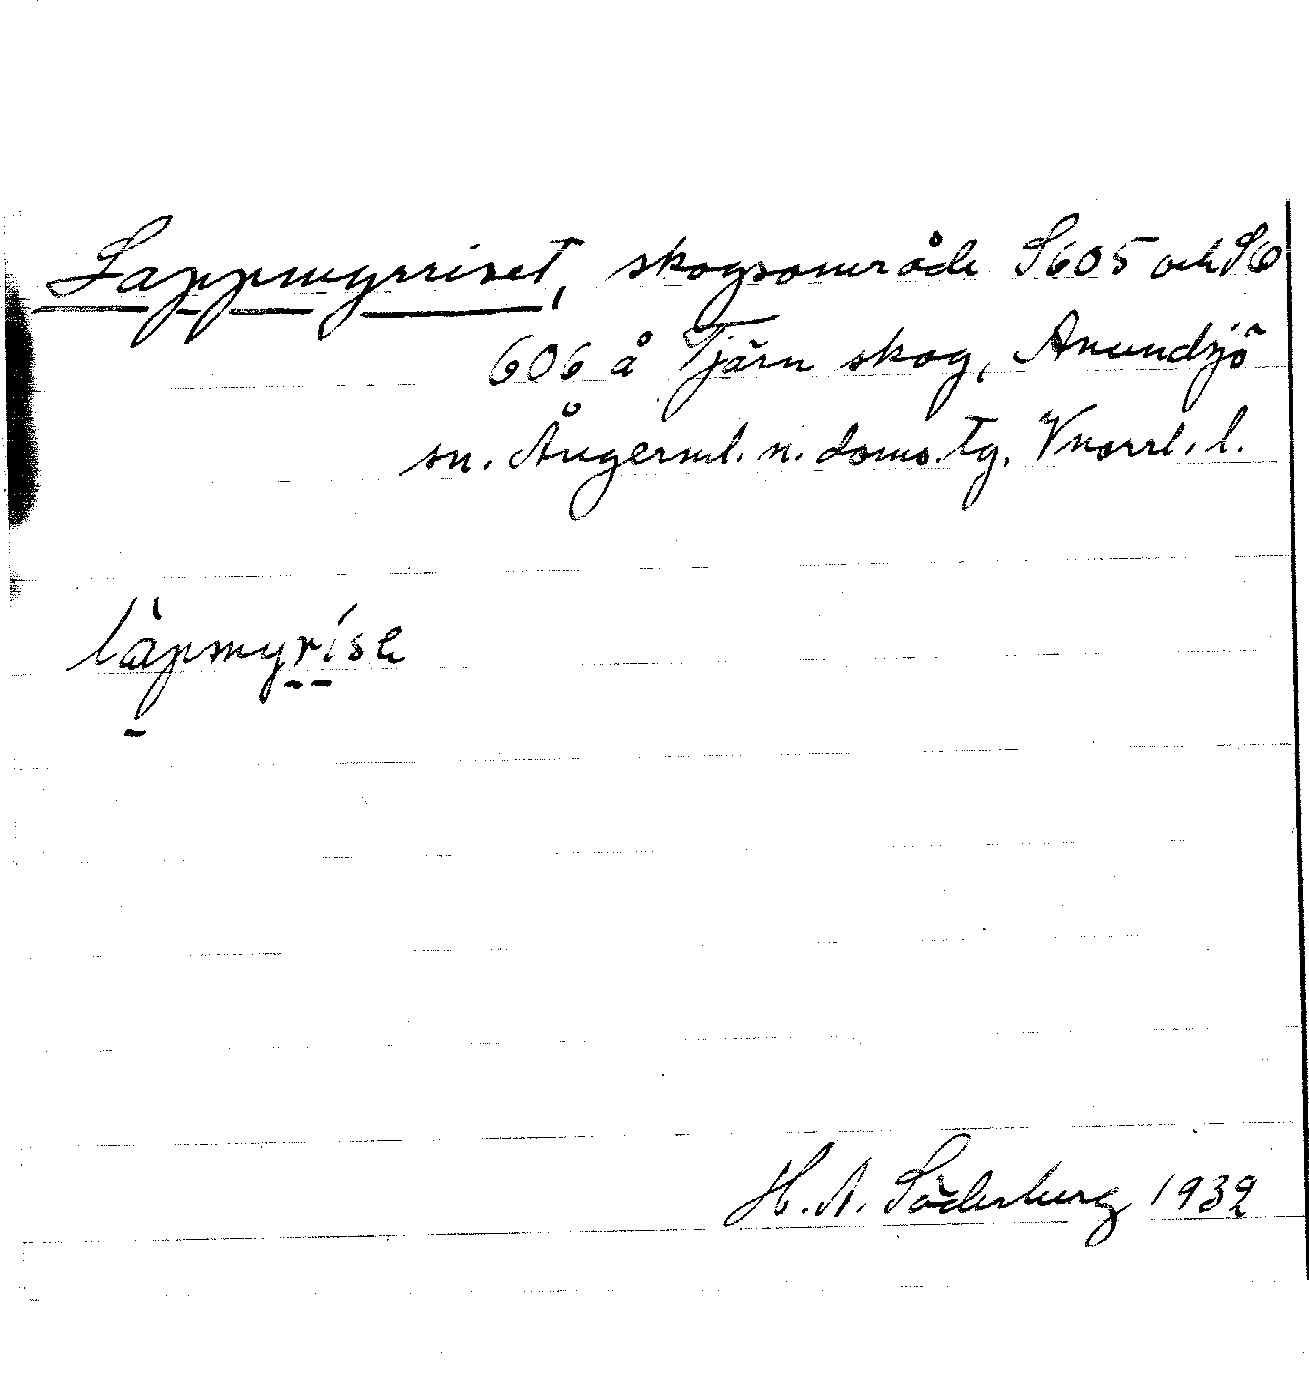 Lappmyrriset, skogsområde S605 och S6
606 å Tjärn skog, Anundsjö
sn. Ångerml. n. doms. tg. Vnorrl. l.
làpmyríse
H. A. Söderberg 1932